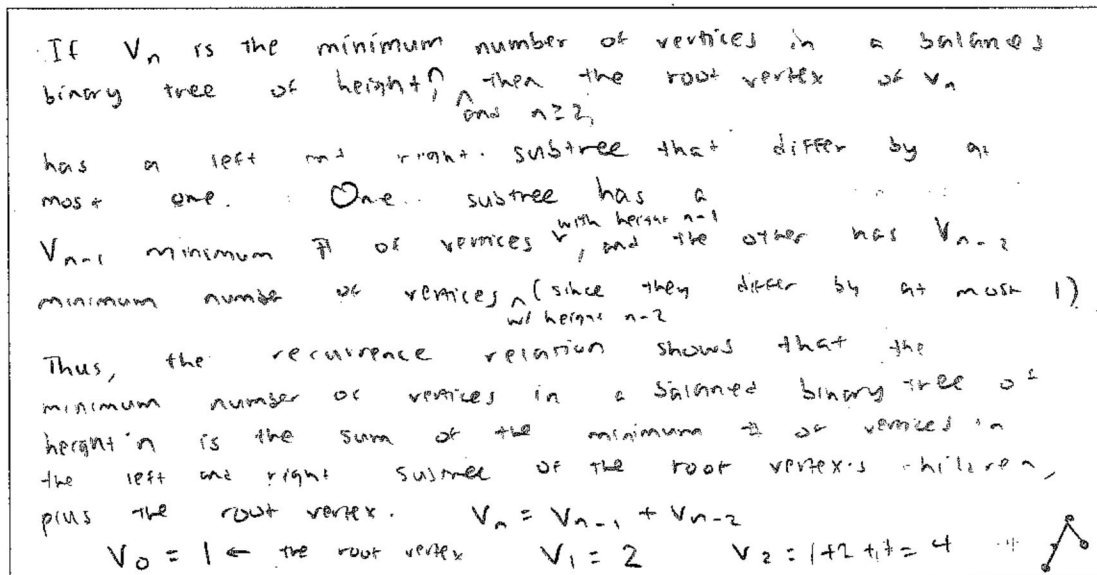 If Vn is the minimum number of vertices in a balanced
binary tree of height n, then the root vertex of Vn
and n≥2,
has a left and right subtree that differ by at
most one. One subtree has a
with height n-1
Vn-1 minimum # of vertices, and the other has Vn-2
minimum number of vertices (since they differ by at most 1)
w/ height n-2
Thus, the recurrence relation shows that the
minimum number of vertices in a balanced binary tree of
height n is the sum of the minimum # of vertices in
the left and right subtree of the root vertex's children,
plus the root vertex. Vn = Vn-1 + Vn-2
V0 = 1 ← the root vertex V1 = 2 V2 = 1+2+1 = 4